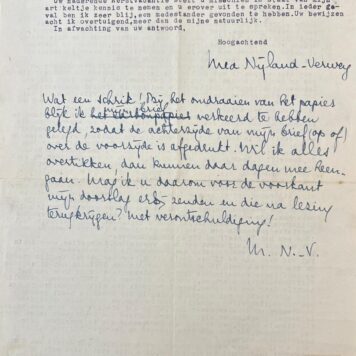 Uw naderende Kerstvacantie stelt u misschien in staat van mijn
art keltje kennis te nemen en u erover uit te spreken. In ieder ge-
val ben ik zeer blij, een medestander gevonden te hebben. Uw bewijzen
acht ik overtuigend, meer dan de mijne natuurlijk.
In afwachting van uw antwoord,
Hoogachtend
Mea Nijland-Verwey
Wat een schrik! Bij het omdraaien van het papier
blijk ik het carbonpapier verkeerd te hebben
gelegd, zodat de achterzijde van mijn brief op of
over de voorzijde is afgedrukt. Wil ik alles
overtikken dan kunnen daar dagen mee heen-
gaan. Mag ik u daarom voor de voorkant
mijn doorslag erbij zenden en die na lezing
terugkrijgen? Met verontschuldiging!
M. N.-V.